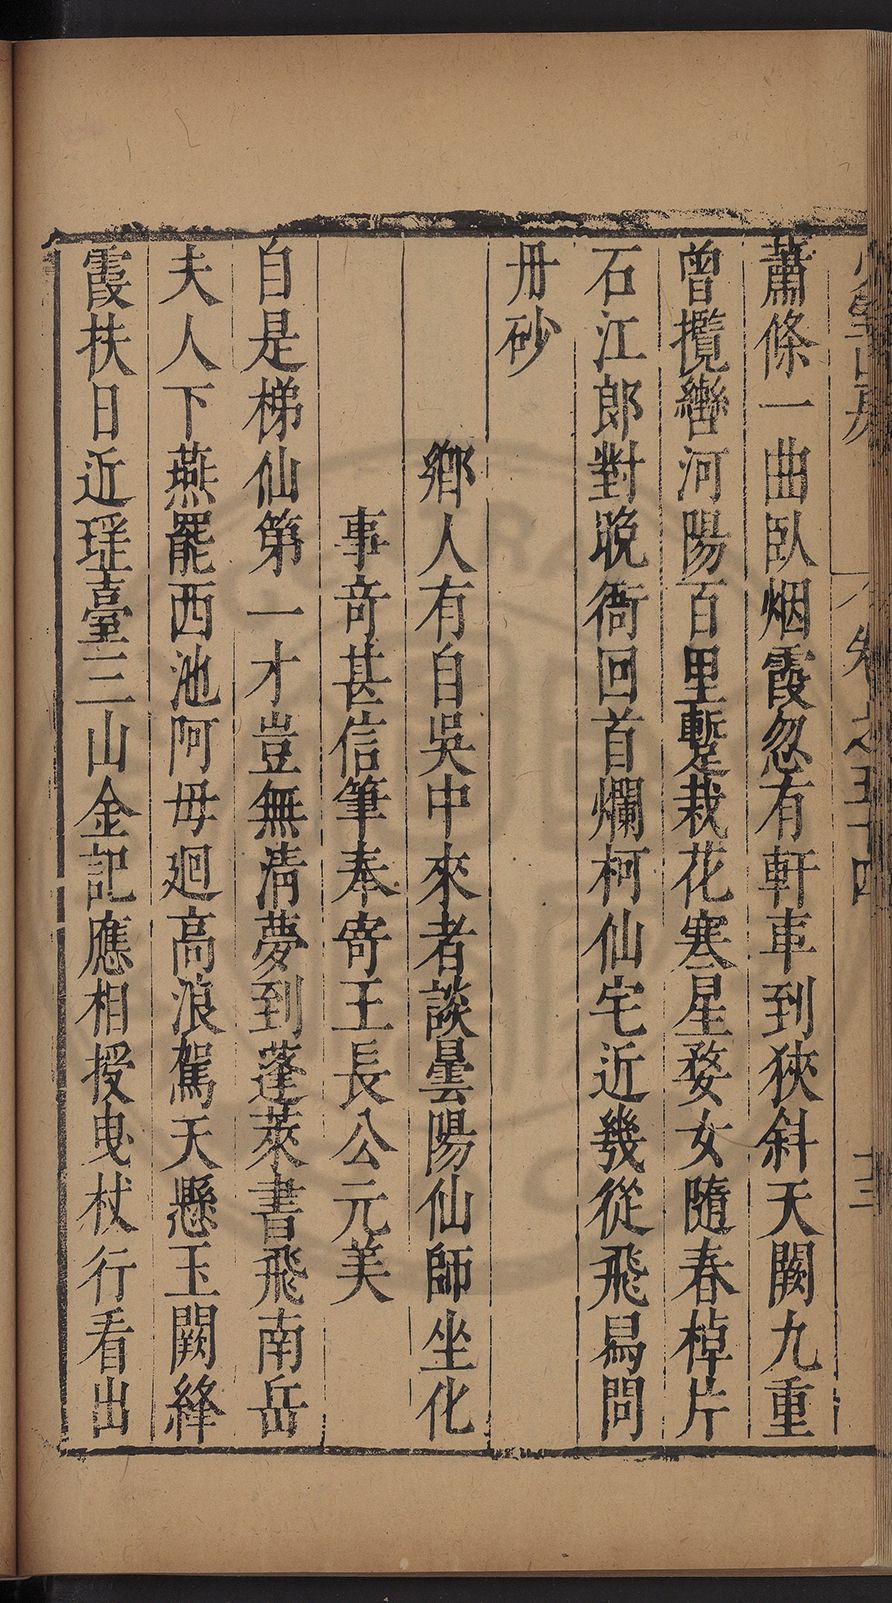 少室山房 卷之五十四 十三
蕭條一曲臥烟霞忽有軒車到狹斜天闕九重
曾攬轡河陽百里蹔栽花寒星婺女隨春棹片
石江郎對晚衙回首爛柯仙宅近幾從飛舄問
丹砂
鄉人有自吳中來者談曇陽仙師坐化
事奇甚信筆奉寄王長公元美
自是梯仙第一才豈無清夢到蓬萊書飛南岳
夫人下燕罷西池阿母廻高浪駕天懸玉闕絳
霞扶日近瑶臺三山金記應相授曳杖行看出